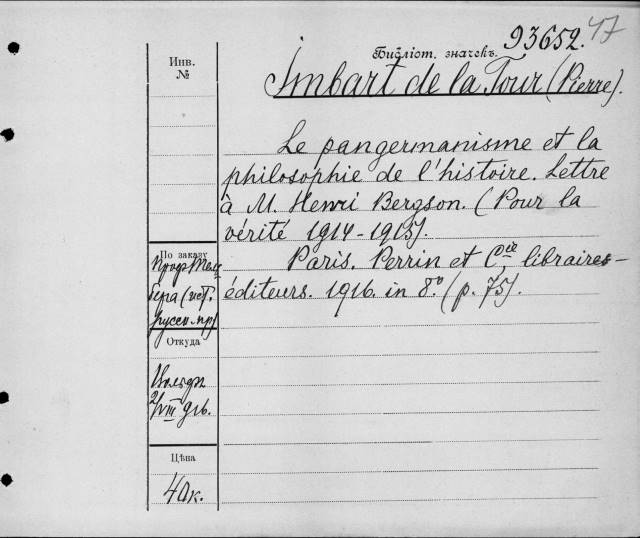 93652. 47
Библіот. значекъ.
Инв.
№
Imbart de la Tour (Pierre).
Le pangermanisme et la
philosophie de l'histoire. Lettre
à M. Henri Bergson. (Pour la
vérité 1914-1915).
Paris. Perrin et Cie, libraires-
éditeurs. 1916. in 8.° (p. 75).
По заказу
Проф.
(ист.
русск. пр)
Откуда
Вольфъ
2/VIII 916.
Цѣна
40к.